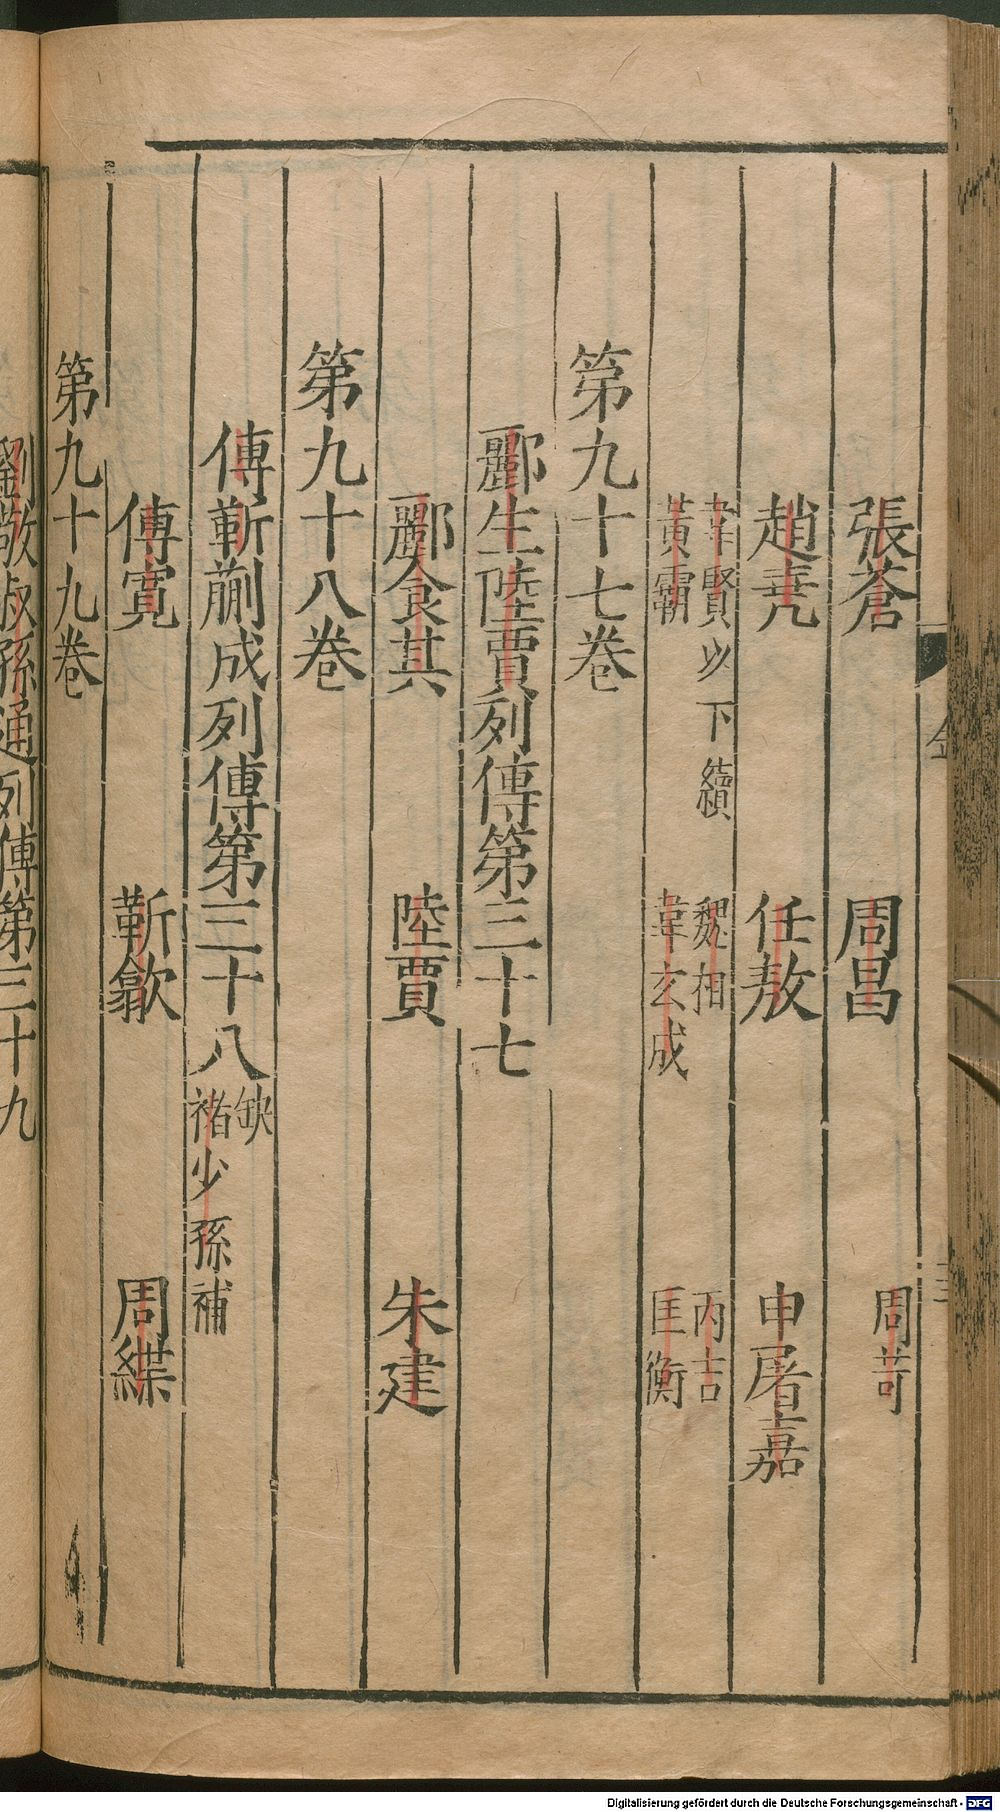 張蒼 周昌 周苛
趙堯 任敖 申屠嘉
韋賢以下續 魏相 丙吉
黃霸 韋玄成 匡衡
第九十七卷
酈生陸賈列傳第三十七
酈食其 陸賈 朱建
第九十八卷
傅靳蒯成列傳第三十八 缺
褚少孫補
傅寬 靳歙 周緤
第九十九卷
劉敬叔孫通列傳第三十九
Digitalisierung gefördert durch die Deutsche Forschungsgemeinschaft - DFG